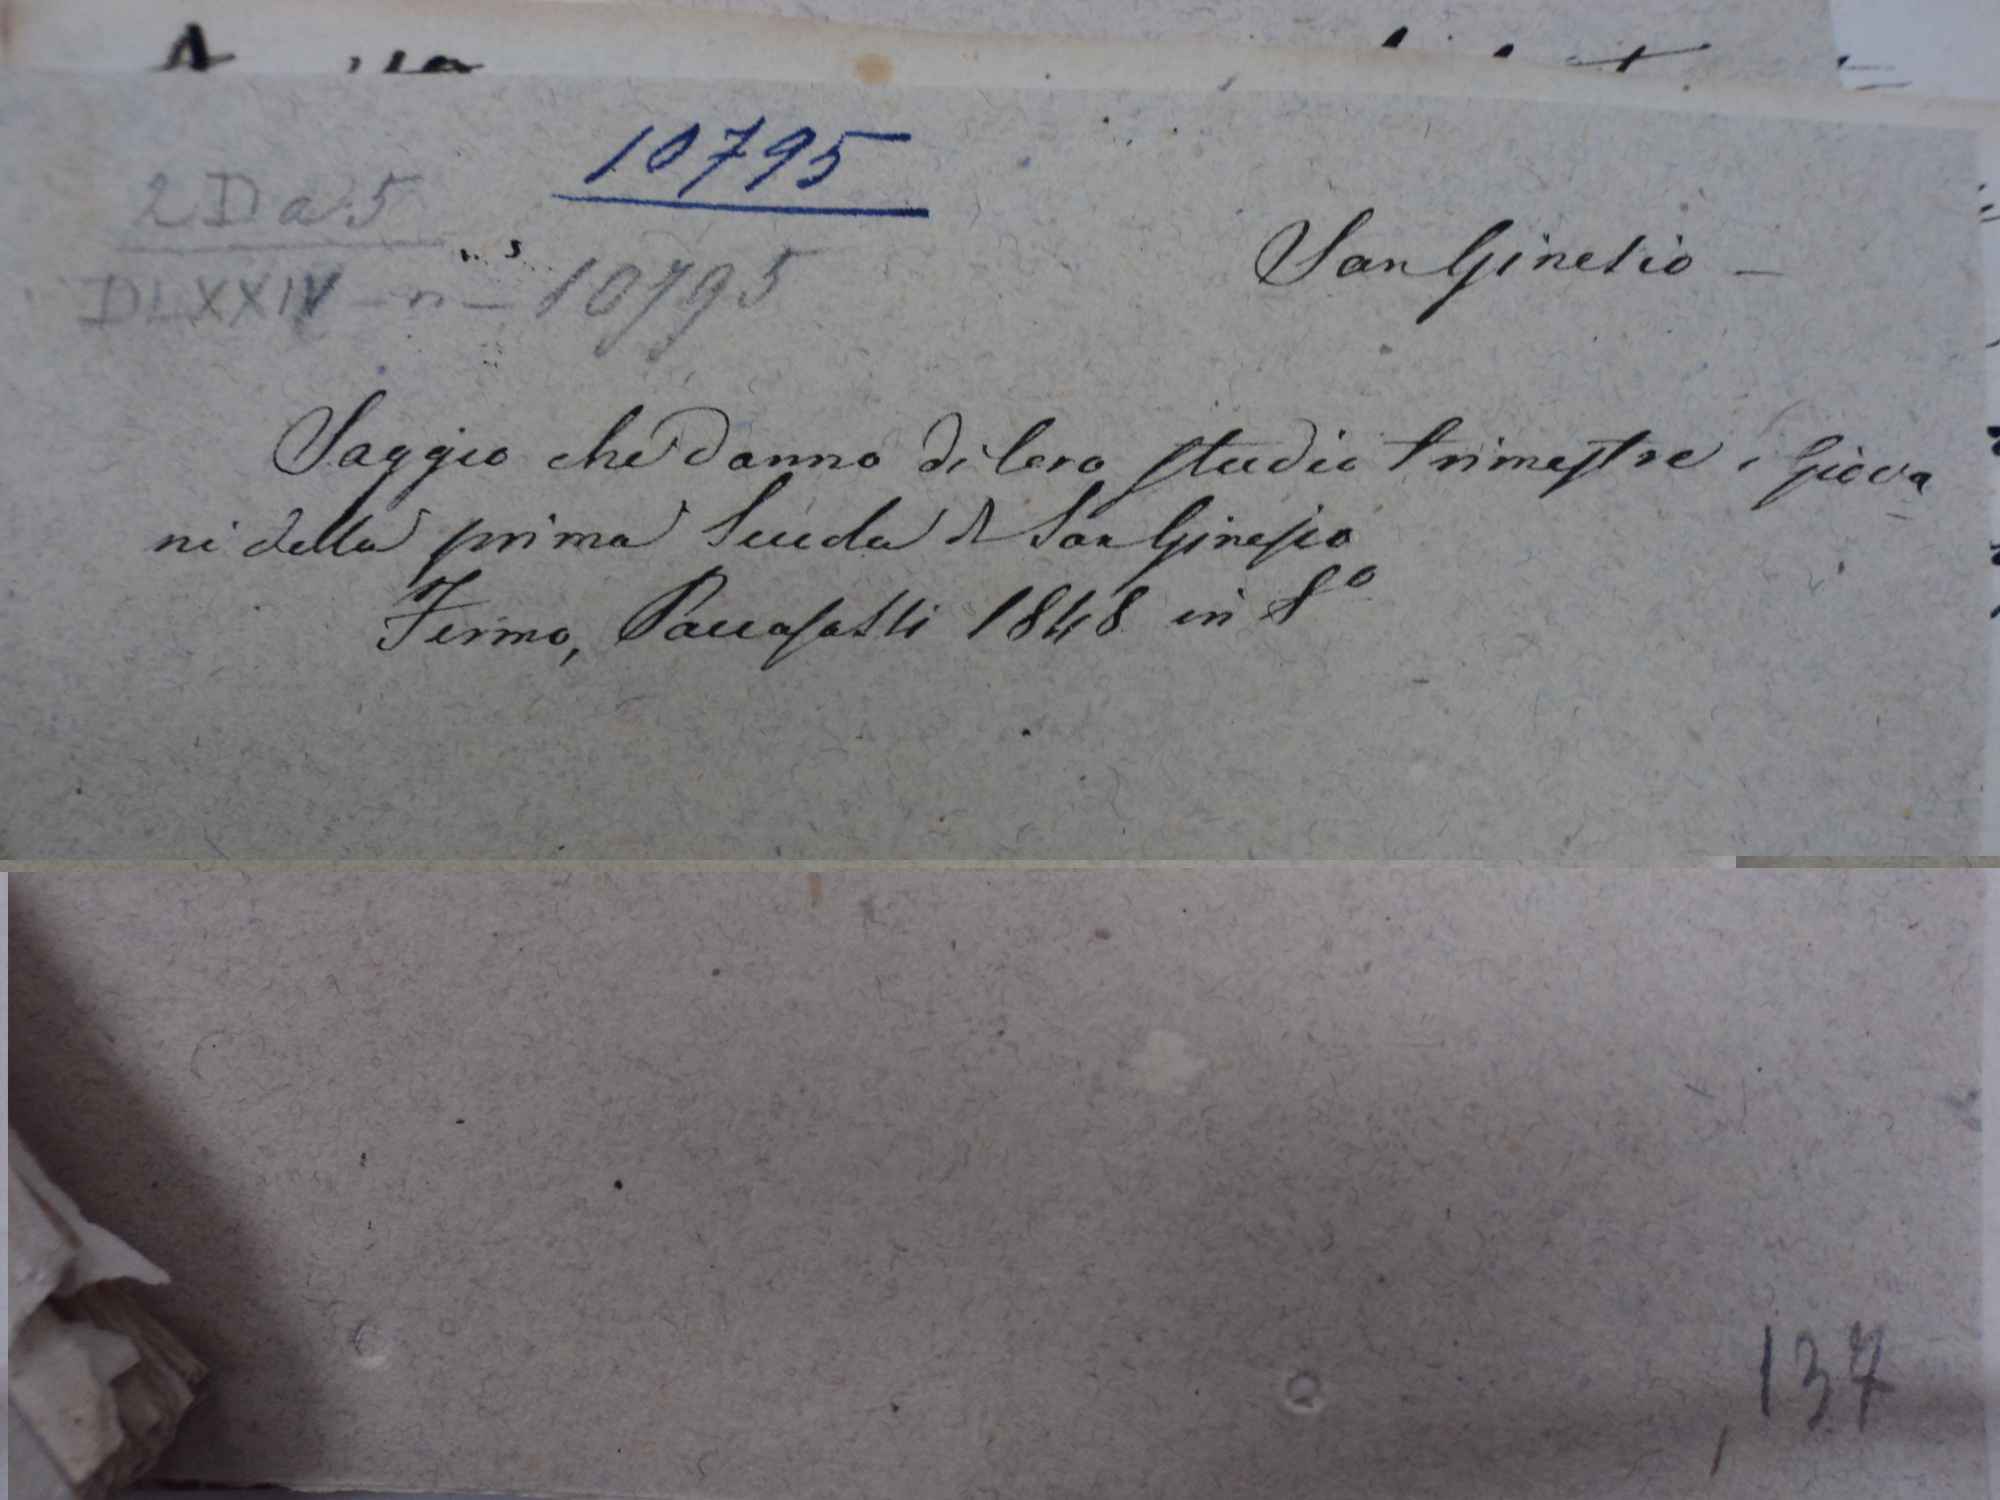 10795
2 D a 5
DLXXIV - n - 10795
San Ginesio -
Saggio che danno di loro studio trimestre i Giova
ni della prima Scuola di San Ginesio
Fermo, Paccasassi 1848 in 8º
137